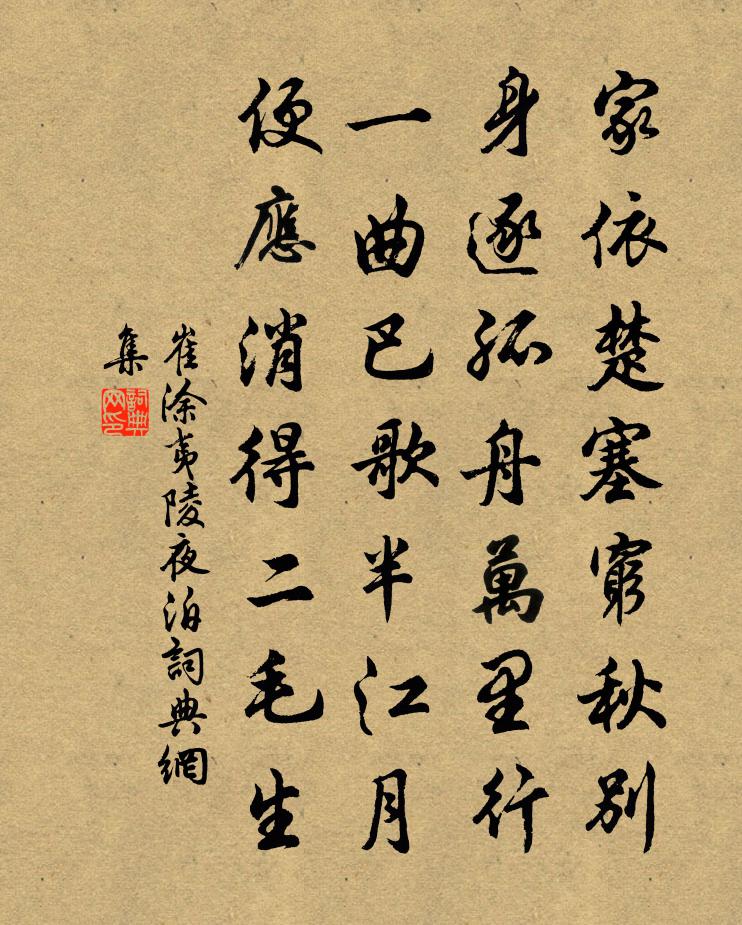 家依楚塞窮秋別
身逐孤舟萬里行
一曲巴歌半江月
便應消得二毛生
崔涂夷陵夜泊詞典網
集
詞典網印